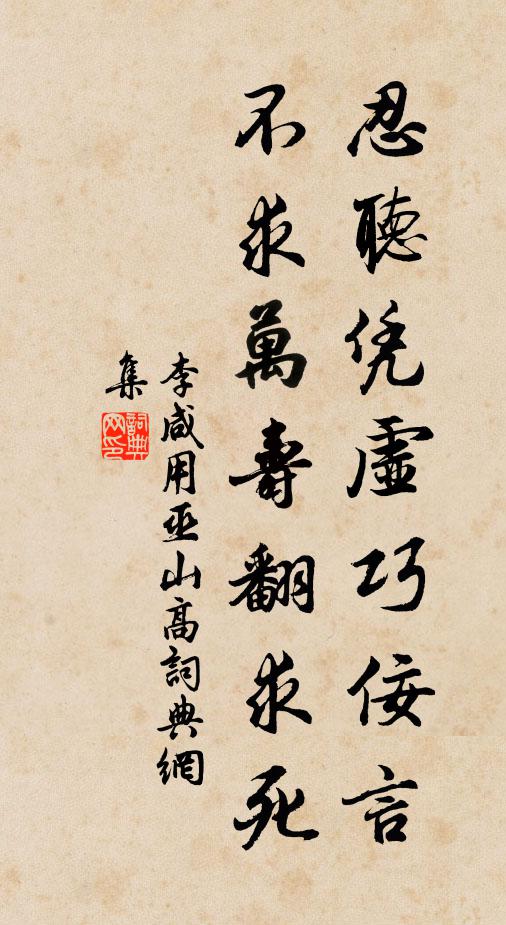 忍聴凭虛巧佞言
不求萬壽翻求死
李咸用巫山高詞典網
集
詞典網印